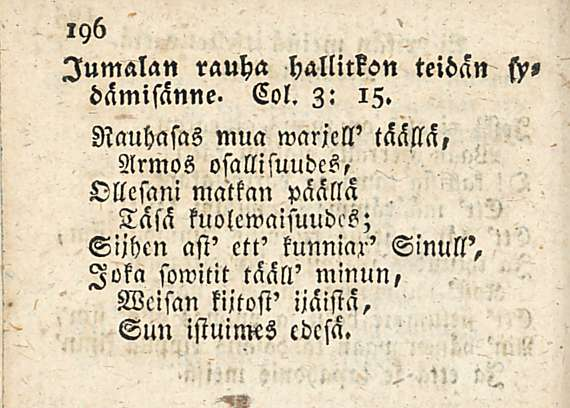 196
Jumalan rauha hallitkon teidän sy⸗
dämisänne. Col. 3: 15.
Rauhasas mua warjell' täällä,
Armos osallisuudes,
Ollesani matkan päällä
Täsä kuolewaisuudes;
Sijhen ast' ett' kunniax' Sinull',
Joka sowitit tääll' minun,
Weisan kijtost' ijäistä,
Sun istuimes edesä.